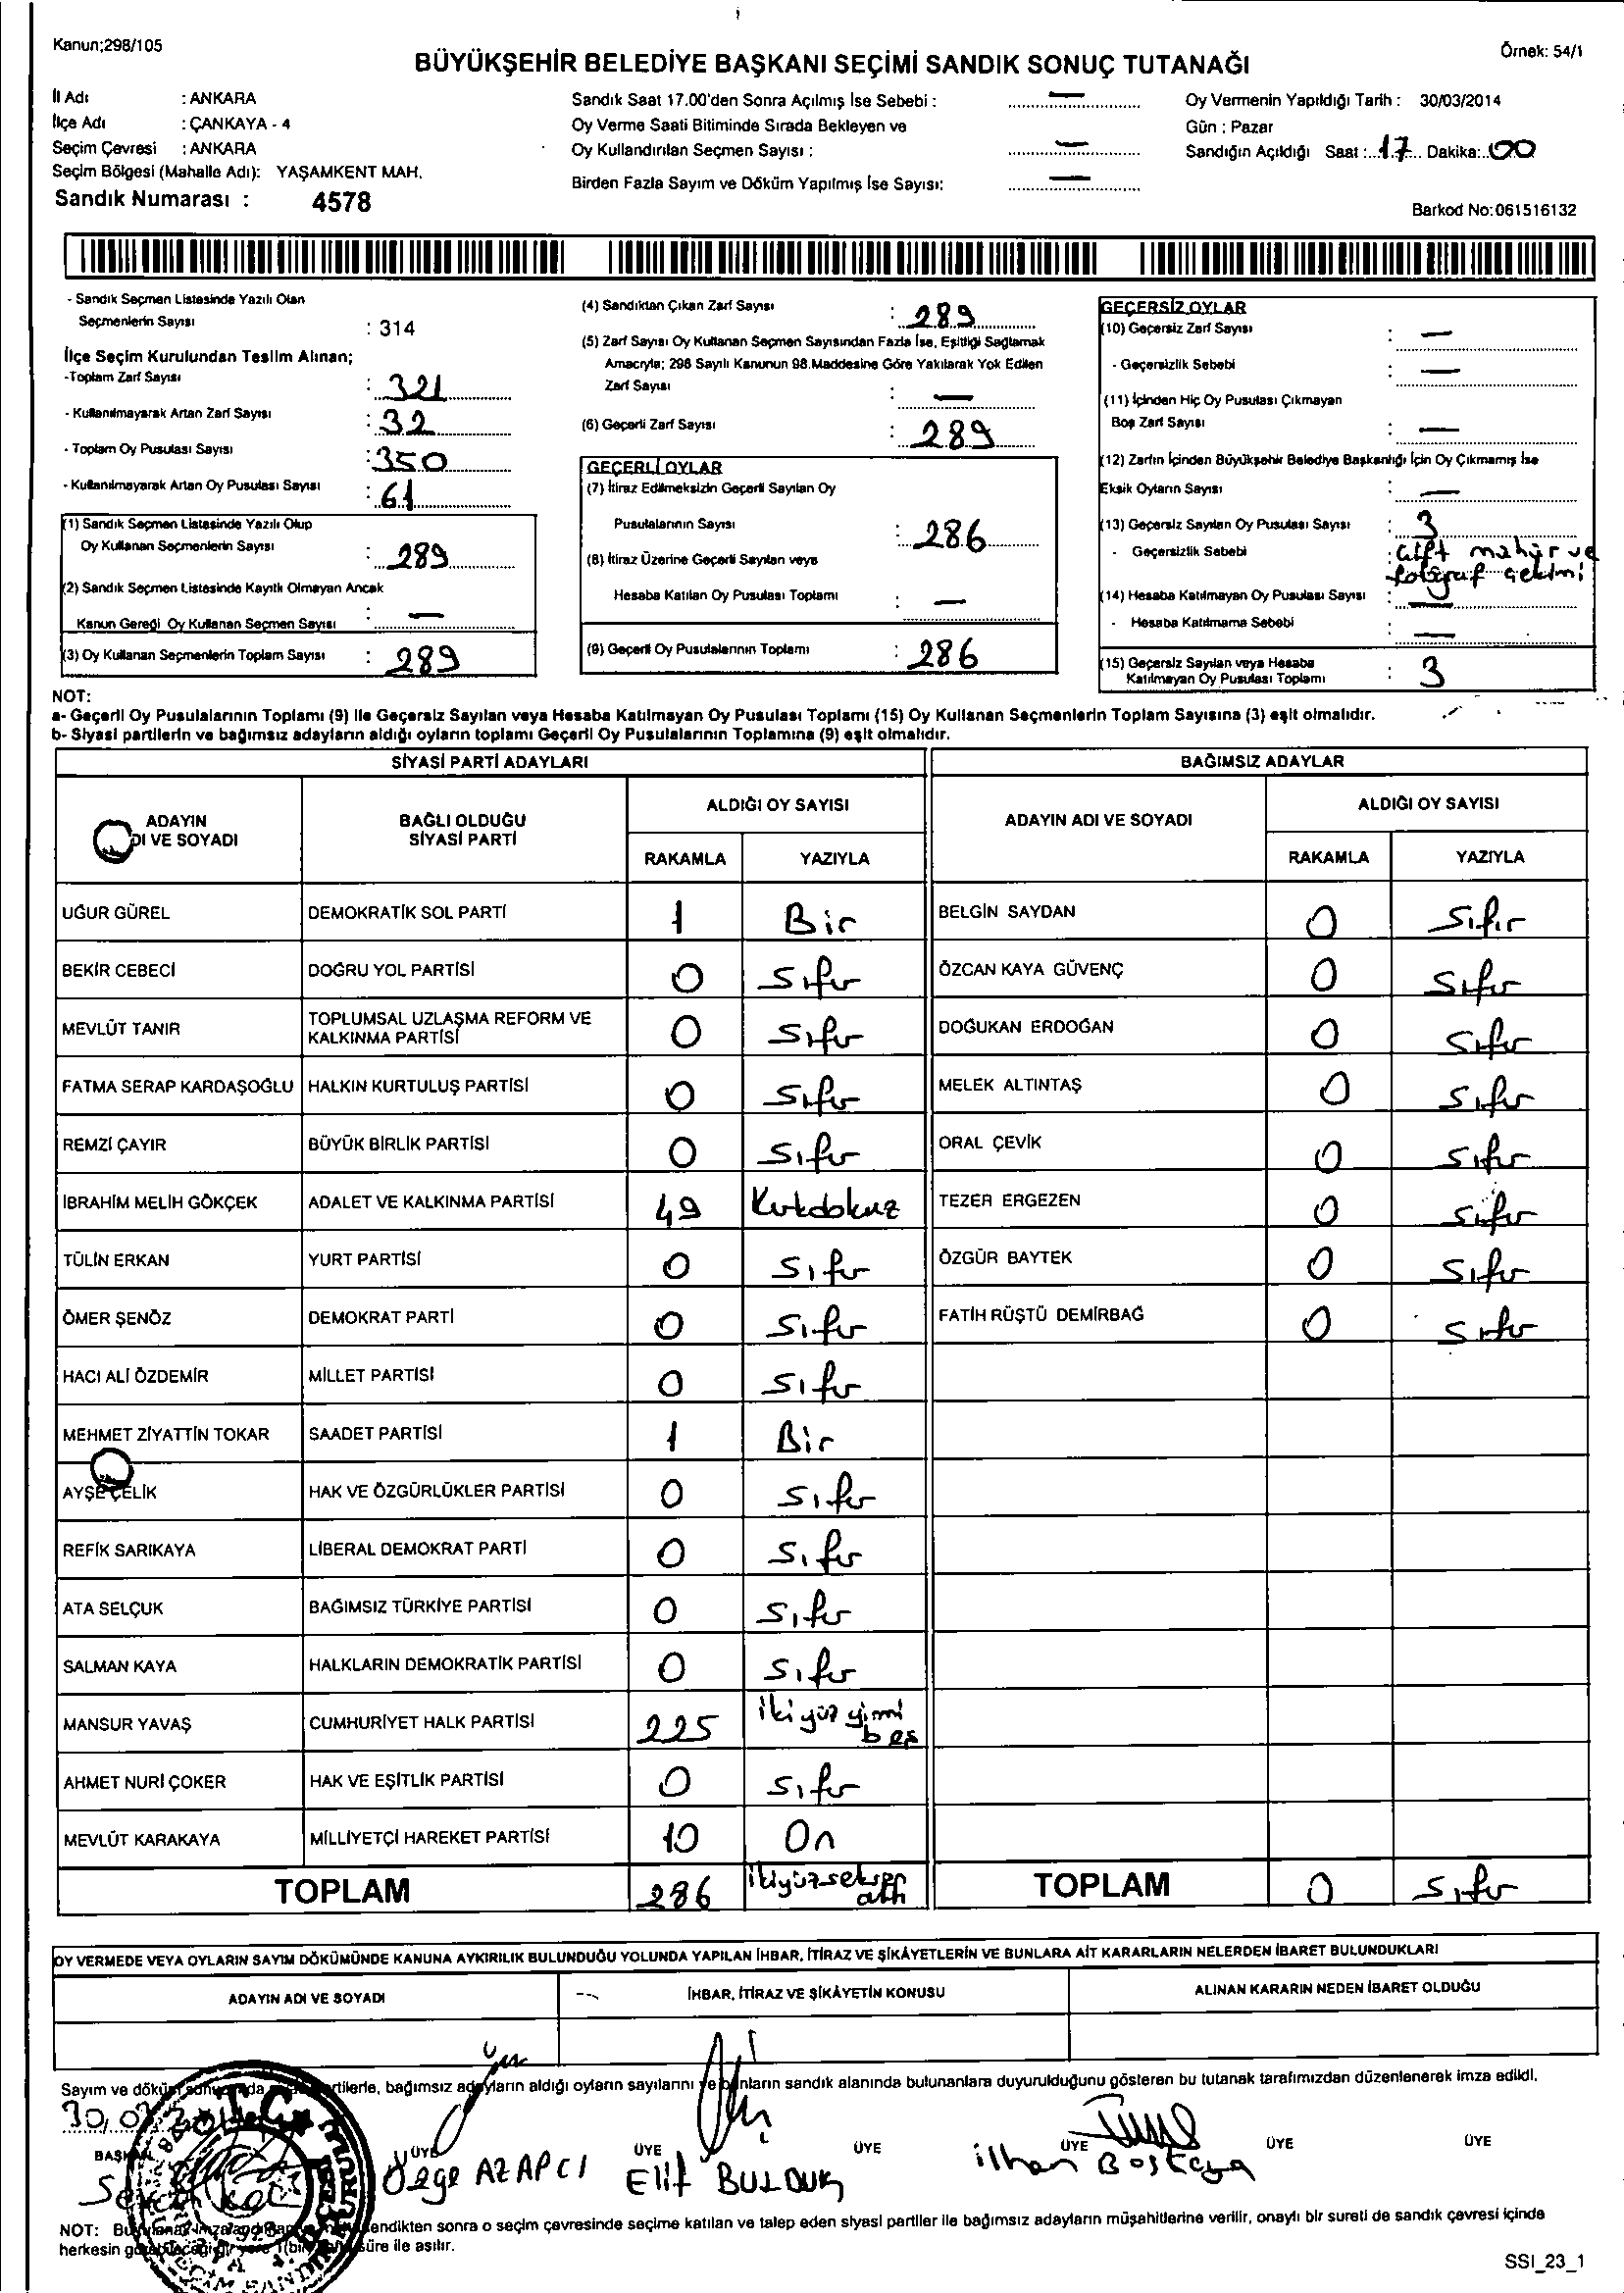 Kanun;298/105
Örnek: 54/1
BÜYÜKŞEHİR BELEDİYE BAŞKANI SEÇİMİ SANDIK SONUÇ TUTANAĞI
İl Adı : ANKARA
İlçe Adı : ÇANKAYA - 4
Seçim Çevresi : ANKARA
Seçim Bölgesi (Mahalle Adı): YAŞAMKENT MAH.
Sandık Numarası : 4578
Sandık Saat 17.00'den Sonra Açılmış İse Sebebi : —
Oy Verme Saati Bitiminde Sırada Bekleyen ve
Oy Kullandırılan Seçmen Sayısı : —
Birden Fazla Sayım ve Döküm Yapılmış İse Sayısı: —
Oy Vermenin Yapıldığı Tarih : 30/03/2014
Gün : Pazar
Sandığın Açıldığı Saat : 17 Dakika: 00
Barkod No:061516132
- Sandık Seçmen Listesinde Yazılı Olan
Seçmenlerin Sayısı : 314
İlçe Seçim Kurulundan Teslim Alınan;
-Toplam Zarf Sayısı : 321
- Kullanılmayarak Artan Zarf Sayısı : 32
- Toplam Oy Pusulası Sayısı : 350
- Kullanılmayarak Artan Oy Pusulası Sayısı : 61
(1) Sandık Seçmen Listesinde Yazılı Olup
Oy Kullanan Seçmenlerin Sayısı : 289
(2) Sandık Seçmen Listesinde Kayıtlı Olmayan Ancak
Kanun Gereği Oy Kullanan Seçmen Sayısı : —
(3) Oy Kullanan Seçmenlerin Toplam Sayısı : 289
(4) Sandıktan Çıkan Zarf Sayısı : 289
(5) Zarf Sayısı Oy Kullanan Seçmen Sayısından Fazla İse, Eşitliği Sağlamak
Amacıyla; 298 Sayılı Kanunun 98.Maddesine Göre Yakılarak Yok Edilen
Zarf Sayısı : —
(6) Geçerli Zarf Sayısı : 289
GEÇERLİ OYLAR
(7) İtiraz Edilmeksizin Geçerli Sayılan Oy
Pusulalarının Sayısı : 286
(8) İtiraz Üzerine Geçerli Sayılan veya
Hesaba Katılan Oy Pusulası Toplamı : —
(9) Geçerli Oy Pusulalarının Toplamı : 286
GEÇERSİZ OYLAR
(10) Geçersiz Zarf Sayısı : —
- Geçersizlik Sebebi : —
(11) İçinden Hiç Oy Pusulası Çıkmayan
Boş Zarf Sayısı : —
(12) Zarfın İçinden Büyükşehir Belediye Başkanlığı İçin Oy Çıkmamış İse
Eksik Oyların Sayısı : —
(13) Geçersiz Sayılan Oy Pusulası Sayısı : 3
- Geçersizlik Sebebi : Çift mühür ve
fotoğraf çekimi
(14) Hesaba Katılmayan Oy Pusulası Sayısı : —
- Hesaba Katılmama Sebebi : —
(15) Geçersiz Sayılan veya Hesaba
Katılmayan Oy Pusulası Toplamı : 3
NOT:
a- Geçerli Oy Pusulalarının Toplamı (9) ile Geçersiz Sayılan veya Hesaba Katılmayan Oy Pusulası Toplamı (15) Oy Kullanan Seçmenlerin Toplam Sayısına (3) eşit olmalıdır.
b- Siyasi partilerin ve bağımsız adayların aldığı oyların toplamı Geçerli Oy Pusulalarının Toplamına (9) eşit olmalıdır.
SİYASİ PARTİ ADAYLARI BAĞIMSIZ ADAYLAR
ADAYIN
DI VE SOYADI
BAĞLI OLDUĞU
SİYASİ PARTİ
ALDIĞI OY SAYISI
RAKAMLA YAZIYLA
ADAYIN ADI VE SOYADI
ALDIĞI OY SAYISI
RAKAMLA YAZIYLA
UĞUR GÜREL DEMOKRATİK SOL PARTİ 1 Bir BELGİN SAYDAN 0 Sıfır
BEKİR CEBECİ DOĞRU YOL PARTİSİ 0 Sıfır ÖZCAN KAYA GÜVENÇ 0 Sıfır
MEVLÜT TANIR TOPLUMSAL UZLAŞMA REFORM VE
KALKINMA PARTİSİ 0 Sıfır DOĞUKAN ERDOĞAN 0 Sıfır
FATMA SERAP KARDAŞOĞLU HALKIN KURTULUŞ PARTİSİ 0 Sıfır MELEK ALTINTAŞ 0 Sıfır
REMZİ ÇAYIR BÜYÜK BİRLİK PARTİSİ 0 Sıfır ORAL ÇEVİK 0 Sıfır
İBRAHİM MELİH GÖKÇEK ADALET VE KALKINMA PARTİSİ 49 Kırkdokuz TEZER ERGEZEN 0 Sıfır
TÜLİN ERKAN YURT PARTİSİ 0 Sıfır ÖZGÜR BAYTEK 0 Sıfır
ÖMER ŞENÖZ DEMOKRAT PARTİ 0 Sıfır FATİH RÜŞTÜ DEMİRBAĞ 0 Sıfır
HACI ALİ ÖZDEMİR MİLLET PARTİSİ 0 Sıfır
MEHMET ZİYATTİN TOKAR SAADET PARTİSİ 1 Bir
AYŞE ÇELİK HAK VE ÖZGÜRLÜKLER PARTİSİ 0 Sıfır
REFİK SARIKAYA LİBERAL DEMOKRAT PARTİ 0 Sıfır
ATA SELÇUK BAĞIMSIZ TÜRKİYE PARTİSİ 0 Sıfır
SALMAN KAYA HALKLARIN DEMOKRATİK PARTİSİ 0 Sıfır
MANSUR YAVAŞ CUMHURİYET HALK PARTİSİ 225 ikiyüz yirmi
beş
AHMET NURİ ÇOKER HAK VE EŞİTLİK PARTİSİ 0 Sıfır
MEVLÜT KARAKAYA MİLLİYETÇİ HAREKET PARTİSİ 10 On
TOPLAM 286 ikiyüzseksen
altı TOPLAM 0 Sıfır
OY VERMEDE VEYA OYLARIN SAYIM DÖKÜMÜNDE KANUNA AYKIRILIK BULUNDUĞU YOLUNDA YAPILAN İHBAR, İTİRAZ VE ŞİKÂYETLERİN VE BUNLARA AİT KARARLARIN NELERDEN İBARET BULUNDUKLARI
ADAYIN ADI VE SOYADI İHBAR, İTİRAZ VE ŞİKÂYETİN KONUSU ALINAN KARARIN NEDEN İBARET OLDUĞU
Sayım ve döküm bağımsız adayların aldığı oyların sayılarını ve bunların sandık alanında bulunanlara duyurulduğunu gösteren bu tutanak tarafımızdan düzenlenerek imza edildi.
BAŞKAN ÜYE ÜYE ÜYE ÜYE ÜYE ÜYE
Özge AZAPCI Elif BULDUK İlhan Bostaya
T.C.
NOT: sonra o seçim çevresinde seçime katılan ve talep eden siyasi partiler ile bağımsız adayların müşahitlerine verilir, onaylı bir sureti de sandık çevresi içinde
herkesin süre ile asılır.
SSI_23_1